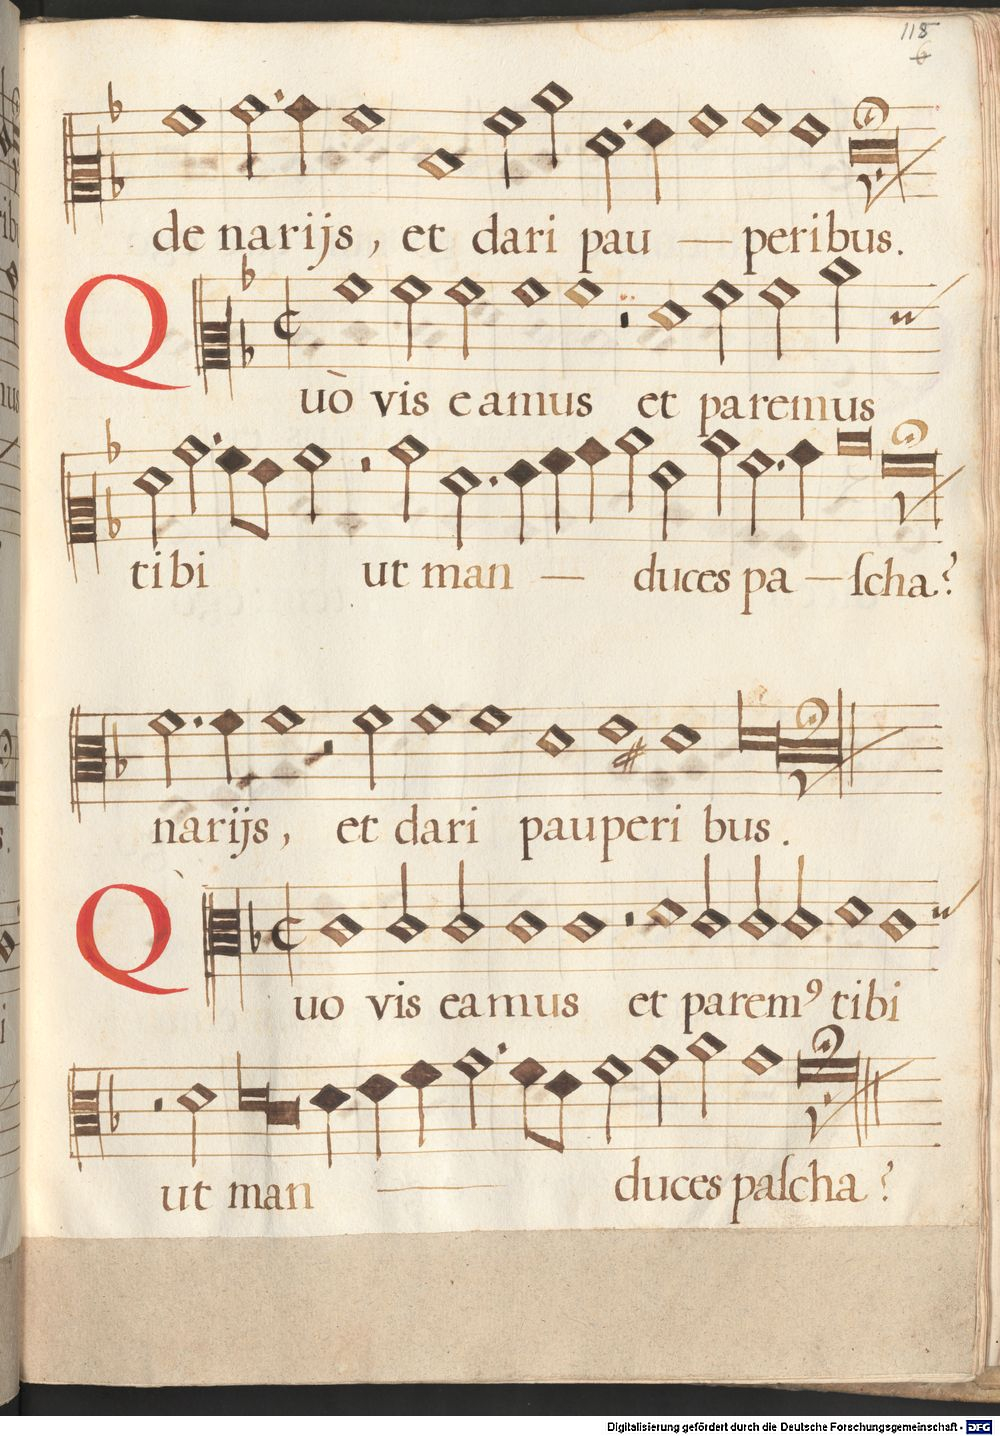 118
6
de narijs, et dari pau — peribus.
Quò vis eamus et paremus
tibi ut man — duces pa — ſcha?
narijs, et dari pauperi bus.
Quo vis eamus et paremꝰ tibi
ut man — duces paſcha?
Digitalisierung gefördert durch die Deutsche Forschungsgemeinschaft - DFG